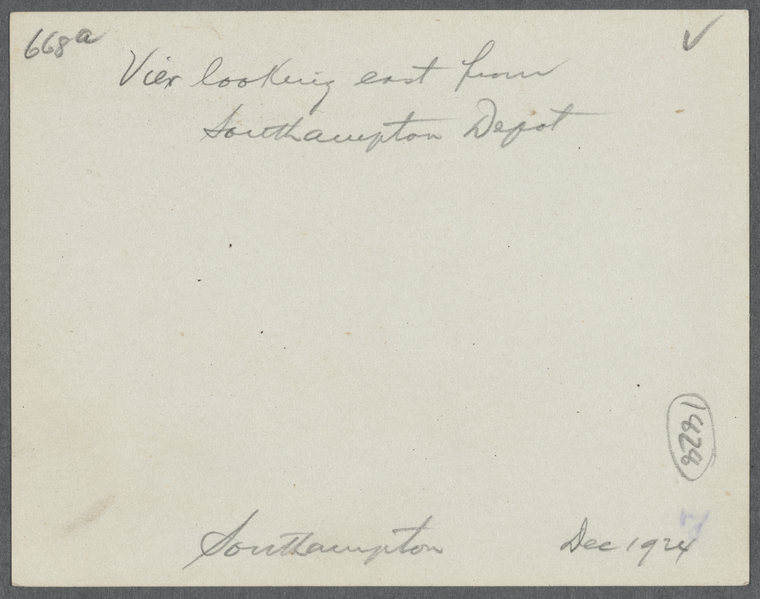 668a
View looking east from
Southampton Depot
Southampton Dec 1924